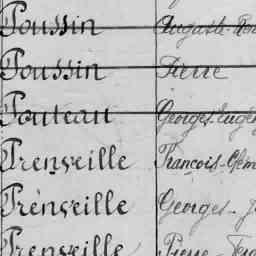 Poussin Auguste
Poussin Pierre
Pouteau Georges Eugène
Prenveille François-Clém
Prénveille Georges - J
Prenveille Pierre